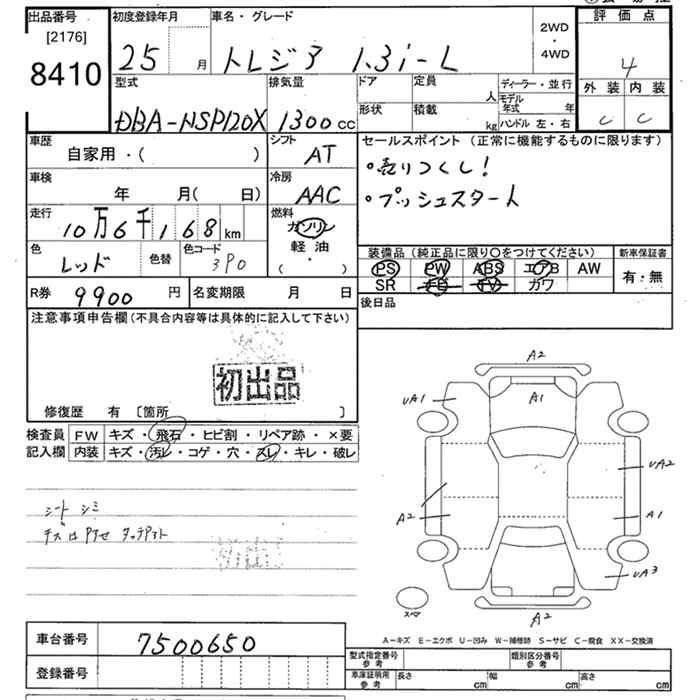 出品番号
[2176]
8410
初度登録年月
25 月
車名・グレード
トレジア 1.3i-L
2WD
・
4WD
評価点
4
型式
DBA-NSP120X
排気量
1300cc
ドア
定員
人
ディーラー・並行
モデル年式 年
ハンドル 左・右
形状
積載
kg
外装 内装
C C
車歴
自家用・( )
シフト
AT
セールスポイント (正常に機能するものに限ります)
・売りつくし!
・プッシュスタート
車検
年 月( 日)
冷房
AAC
走行
10万6千168km
燃料
ガソリン
軽油
( )
色
レッド
色替
色コード
3P0
装備品 (純正品に限り○をつけてください)
PS PW ABS エアB AW
SR FD TV カワ
新車保証書
有・無
R券
9900円
名変期限 月 日
後日品
注意事項申告欄(不具合内容等は具体的に記入して下さい)
初出品
修復歴 有 〔箇所 〕
検査員記入欄
FW キズ・飛石・ヒビ割・リペア跡・×要
内装 キズ・汚レ・コゲ・穴・スレ・キレ・破レ
シート シミ
A2
UA1
A1
UA2
A2
A1
UA3
A2
スペア
A-キズ E-エクボ U-凹み W-補修跡 S-サビ C-腐食 XX-交換済
車台番号
7500650
登録番号
型式指定番号
参考
類別区分番号
参考
車庫証明用
参考
長さ cm
幅 cm
高さ cm